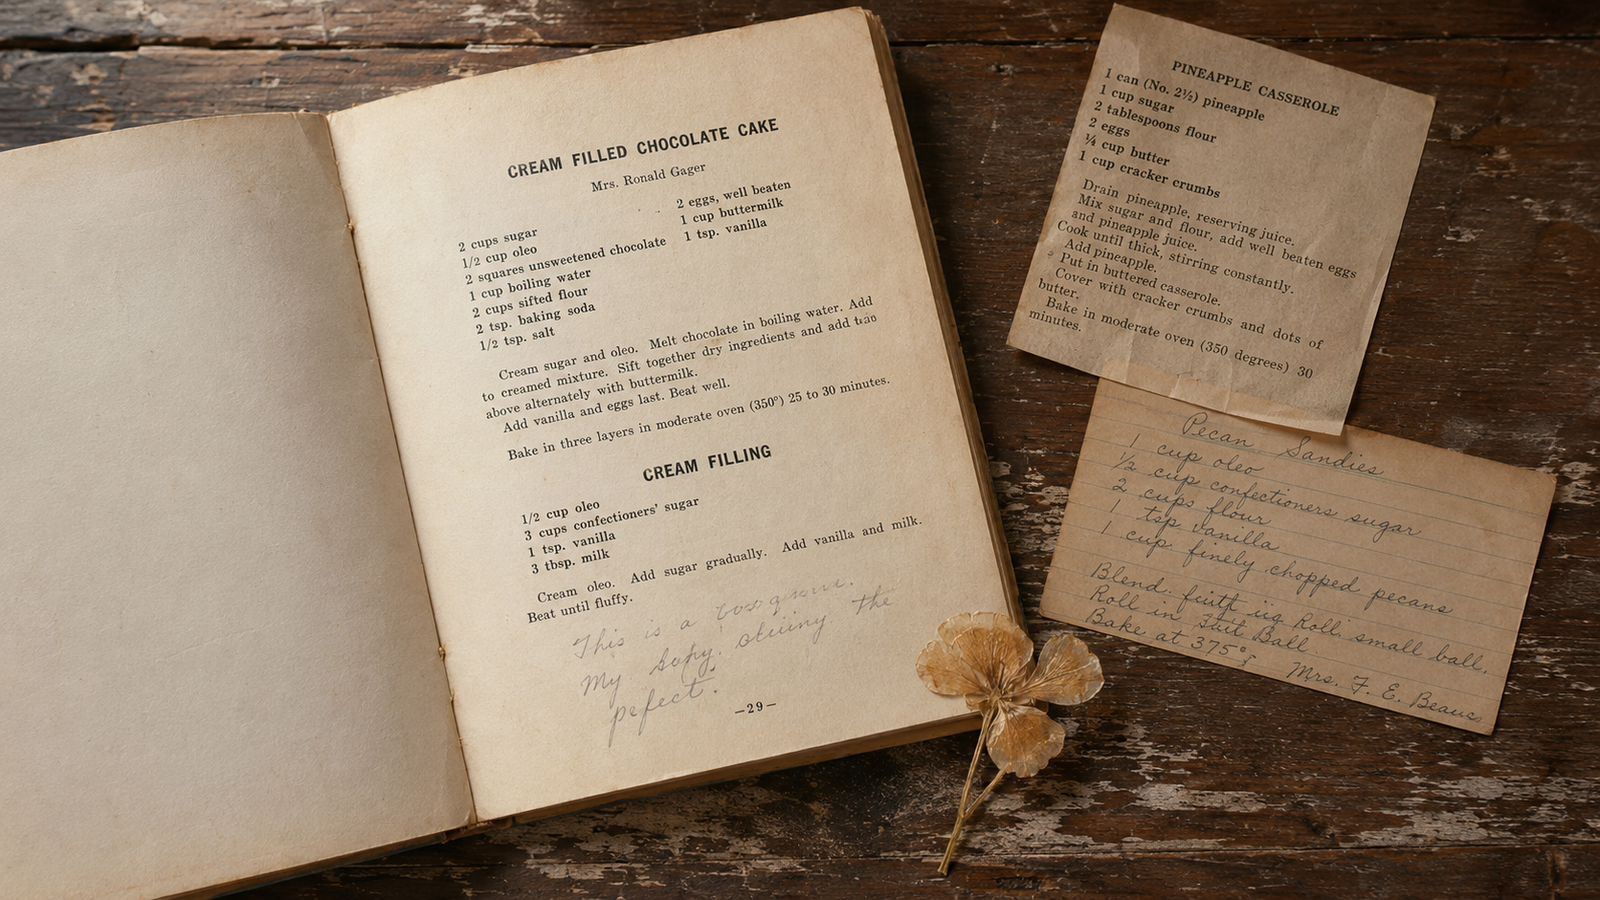 CREAM FILLED CHOCOLATE CAKE
Mrs. Ronald Gager
2 cups sugar
1/2 cup oleo
2 squares unsweetened chocolate
1 cup boiling water
2 cups sifted flour
2 tsp. baking soda
1/2 tsp. salt
2 eggs, well beaten
1 cup buttermilk
1 tsp. vanilla
Cream sugar and oleo. Melt chocolate in boiling water. Add
to creamed mixture. Sift together dry ingredients and add
above alternately with buttermilk.
Add vanilla and eggs last. Beat well.
Bake in three layers in moderate oven (350°) 25 to 30 minutes.
CREAM FILLING
1/2 cup oleo
3 cups confectioners' sugar
1 tsp. vanilla
3 tbsp. milk
Cream oleo. Add sugar gradually. Add vanilla and milk.
Beat until fluffy.
This is a
My the
pefect.
—29—
PINEAPPLE CASSEROLE
1 can (No. 2½) pineapple
1 cup sugar
2 tablespoons flour
2 eggs
¼ cup butter
1 cup cracker crumbs
Drain pineapple, reserving juice.
Mix sugar and flour, add well beaten eggs
and pineapple juice.
Cook until thick, stirring constantly.
Add pineapple.
Put in buttered casserole.
Cover with cracker crumbs and dots of
butter.
Bake in moderate oven (350 degrees) 30
minutes.
Pecan Sandies
1 cup oleo
½ cup confectioners sugar
2 cups flour
1 tsp vanilla
1 cup finely chopped pecans
Blend. Roll. small ball.
Roll in Ball.
Bake at 375° Mrs. F. E.